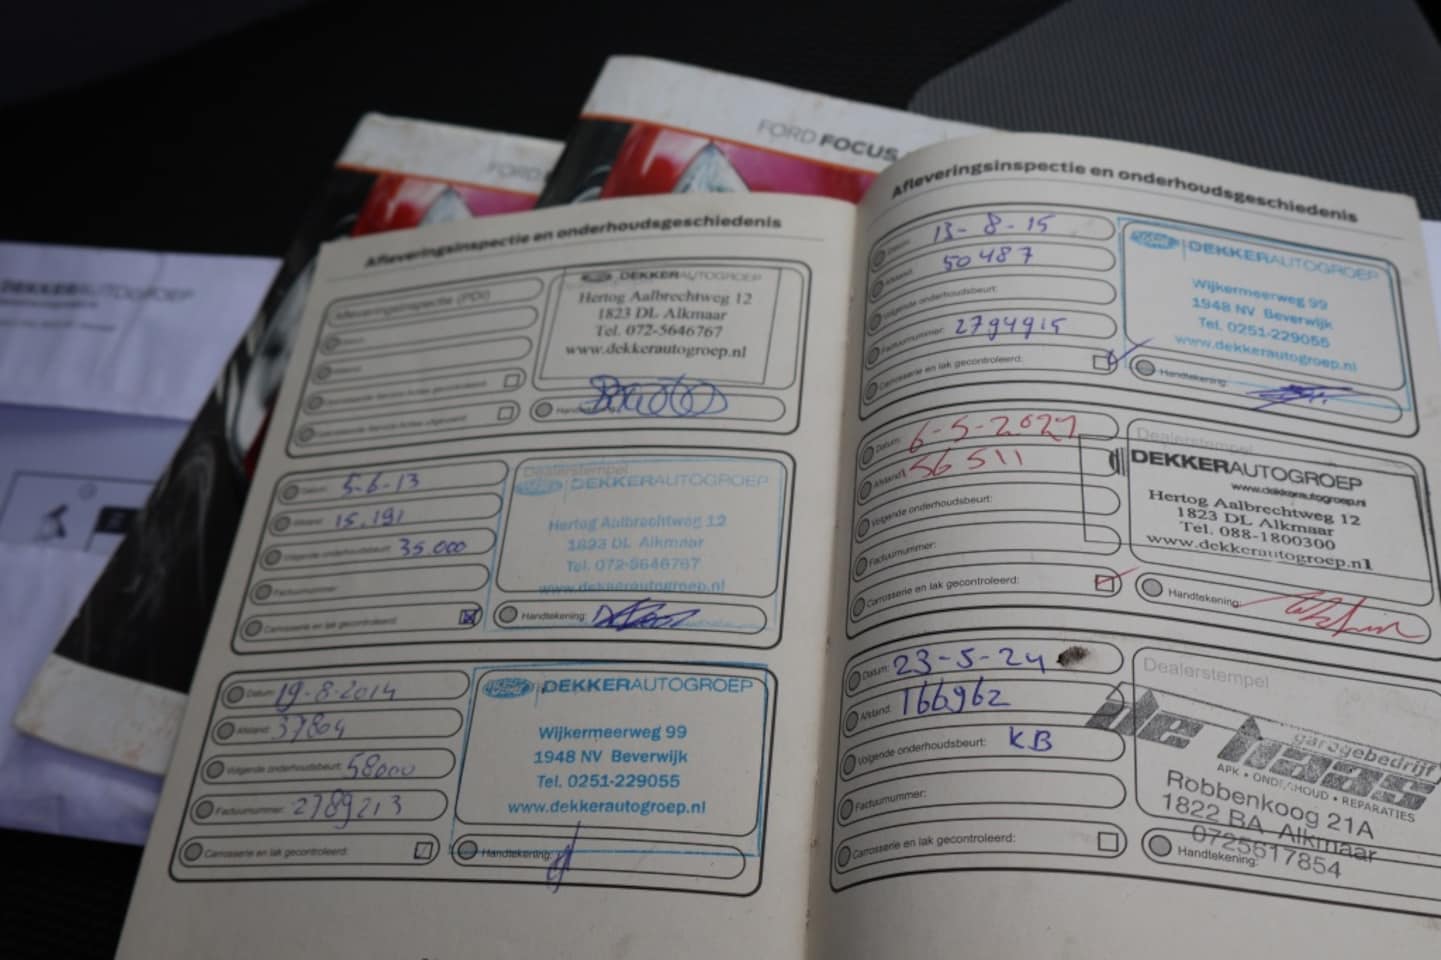 DEKKERAUTOGROEP
FORD
FORD FOCUS
Afleveringsinspectie en onderhoudsgeschiedenis
Afleveringsinspectie (PDI)
DEKKERAUTOGROEP
Hertog Aalbrechtweg 12
1823 DL Alkmaar
Tel. 072-5646767
www.dekkerautogroep.nl
Datum: 5-6-13
Afstand: 15.191
Volgende onderhoudsbeurt: 35.000
Factuurnummer:
Carrosserie en lak gecontroleerd:
Dealerstempel
DEKKERAUTOGROEP
Hertog Aalbrechtweg 12
1823 DL Alkmaar
Tel. 072-5646767
www.dekkerautogroep.nl
Handtekening:
Datum: 19-8-2014
Afstand: 37804
Volgende onderhoudsbeurt: 58000
Factuurnummer: 2789213
Carrosserie en lak gecontroleerd:
DEKKERAUTOGROEP
Wijkermeerweg 99
1948 NV Beverwijk
Tel. 0251-229055
www.dekkerautogroep.nl
Handtekening:
Afleveringsinspectie en onderhoudsgeschiedenis
Datum: 13-8-15
Afstand: 50487
Volgende onderhoudsbeurt:
Factuurnummer: 2794915
Carrosserie en lak gecontroleerd:
DEKKERAUTOGROEP
Wijkermeerweg 99
1948 NV Beverwijk
Tel. 0251-229055
www.dekkerautogroep.nl
Handtekening:
Datum: 6-5-2021
Afstand: 56511
Volgende onderhoudsbeurt:
Factuurnummer:
Carrosserie en lak gecontroleerd:
Dealerstempel
DEKKERAUTOGROEP
www.dekkerautogroep.nl
Hertog Aalbrechtweg 12
1823 DL Alkmaar
Tel. 088-1800300
www.dekkerautogroep.nl
Handtekening:
Datum: 23-5-24
Afstand: 166962
Volgende onderhoudsbeurt: KB
Factuurnummer:
Carrosserie en lak gecontroleerd:
Dealerstempel
garagebedrijf
de haas
APK • ONDERHOUD • REPARATIES
Robbenkoog 21A
1822 BA Alkmaar
0725617854
Handtekening: